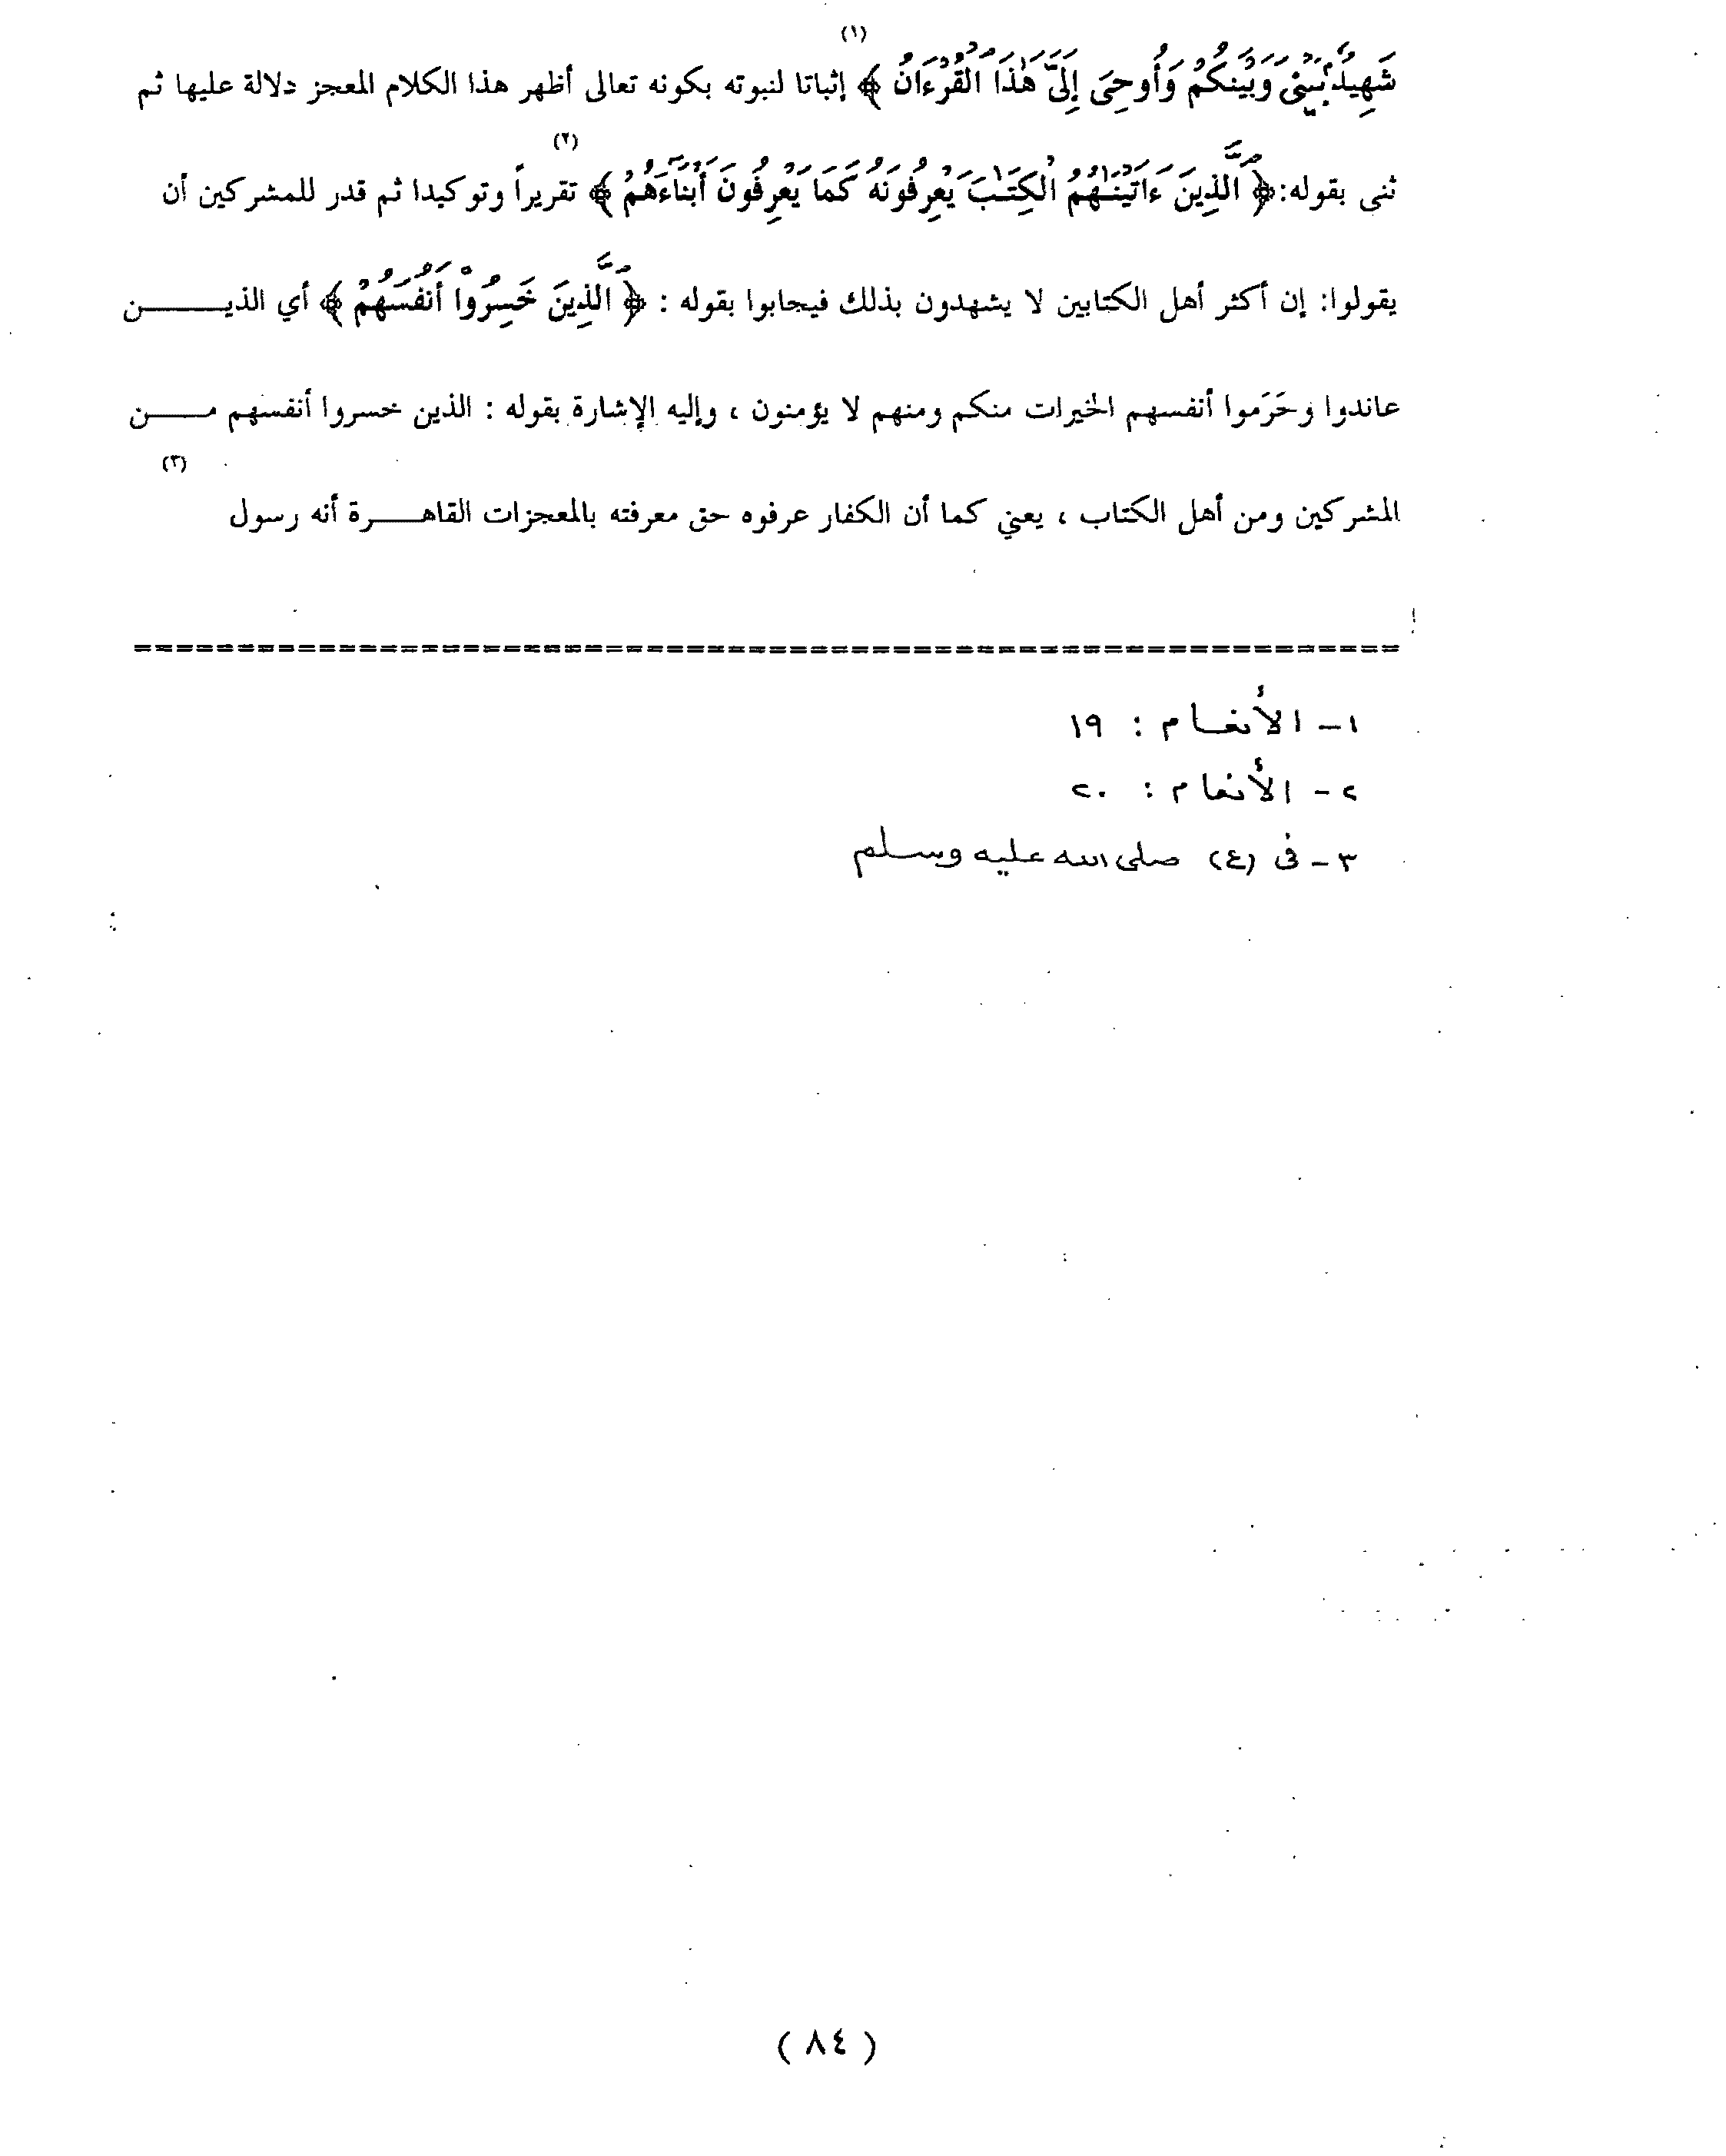 شَهِيدٌۢ بَيْنِى وَبَيْنَكُمْ وَأُوحِىَ إِلَىَّ هَٰذَا الْقُرْءَانُ ﴾ (١) إثباتا لنبوته بكونه تعالى أظهر هذا الكلام المعجز دلالة عليها ثم
ثنى بقوله: ﴿ الَّذِينَ ءَاتَيْنَٰهُمُ الْكِتَٰبَ يَعْرِفُونَهُ كَمَا يَعْرِفُونَ أَبْنَآءَهُمُ ﴾ (٢) تقريراً وتوكيدا ثم قدر للمشركين أن
يقولوا: إن أكثر أهل الكتابين لا يشهدون بذلك فيجابوا بقوله : ﴿ الَّذِينَ خَسِرُوٓاْ أَنفُسَهُمْ ﴾ أي الذيـــــــن
عاندوا وحَرَموا أنفسهم الخيرات منكم ومنهم لا يؤمنون ، وإليه الإشارة بقوله : الذين خسروا أنفسهم مـــــن
المشركين ومن أهل الكتاب ، يعني كما أن الكفار عرفوه حق معرفته بالمعجزات القاهـــــرة أنه رسول (٣)
==============================
١ - الأنعام : ١٩
٢ - الأنعام : ٢٠
٣ - فى (ع) صلى الله عليه وسلم
( ٨٤ )